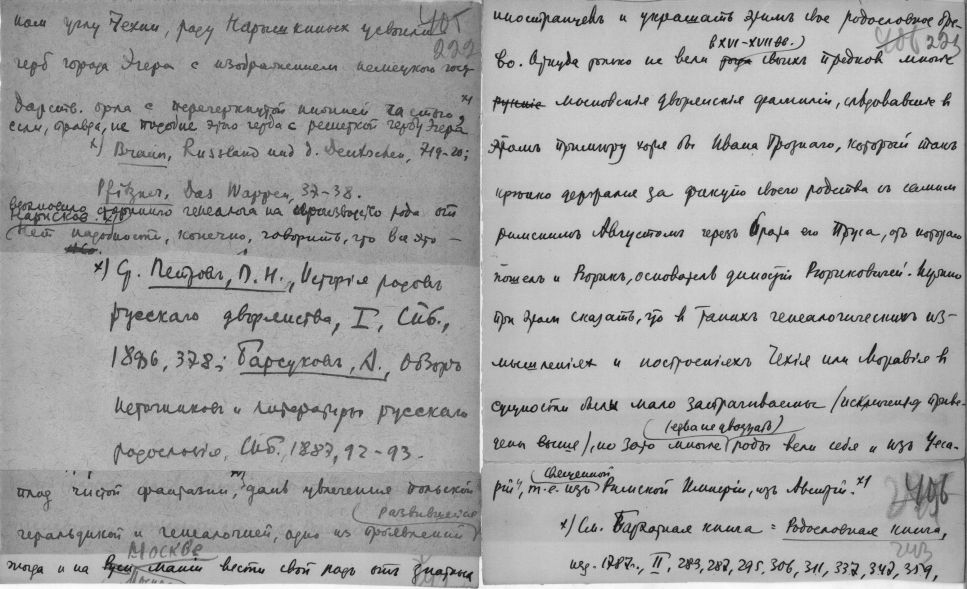 ном углу Чехии, роду Нарышкиных усвоили 405
222
герб города Эгера с изображением немецкого госу
дарств. орла с перечеркнутой линией
если, правда, не подобие этого герба с решеткой гербу Эгера
x) Braun, Russland und d. Deutschen, 719-20;
Pfitzner, Das Wappen, 37-38.
возможно
Нарисков. x) генеалога на производство рода от
Нет надобности, конечно, говорить, что все это –
x) Ср. Петровъ, П. Н., Исторія родовъ
русскаго дворянства, I, Спб.,
1886, 378; Барсуковъ, А., Обзоръ
источниковъ и литературы русскаго
родословія, Спб., 1887, 92-93.
плод чистой фантазии, дань увлечения польской
развившейся
геральдикой и генеалогией, одно из проявлений
Москве
тогда и на Руси маніи вести свой родъ отъ знатных
иностранцевъ и украшать этимъ свое родословное дре-
406 223
(в XVI-XVII вв.)
во. Откуда только не вели тогда своихъ предков многие
русские московскія дворянскія фамиліи, следовавшие в
этомъ примеру хотя бы Ивана Грознаго, который такъ
крепко держался за фикцию своего родства съ самим
римскимъ Августомъ через брата его Пруса, отъ котораго
пошелъ и Рюрикъ, основатель династіи Рюриковичей. Нужно
при этом сказать, что в такихъ генеалогических из-
мышленіях и построеніяхъ Чехія или Моравія в
сущности были мало затрагиваемы (исключенія приве-
(едва не двадцать)
дены выше), но зато многие роды вели себя и изъ Цеса-
Священной
ріи", т.е. изъ Римской Имперіи, из Австріи. x)
406
x) См. Бархатная книга = Родословная книга,
изд. 1787 г., II, 283, 287, 295, 306, 311, 337, 347, 359,